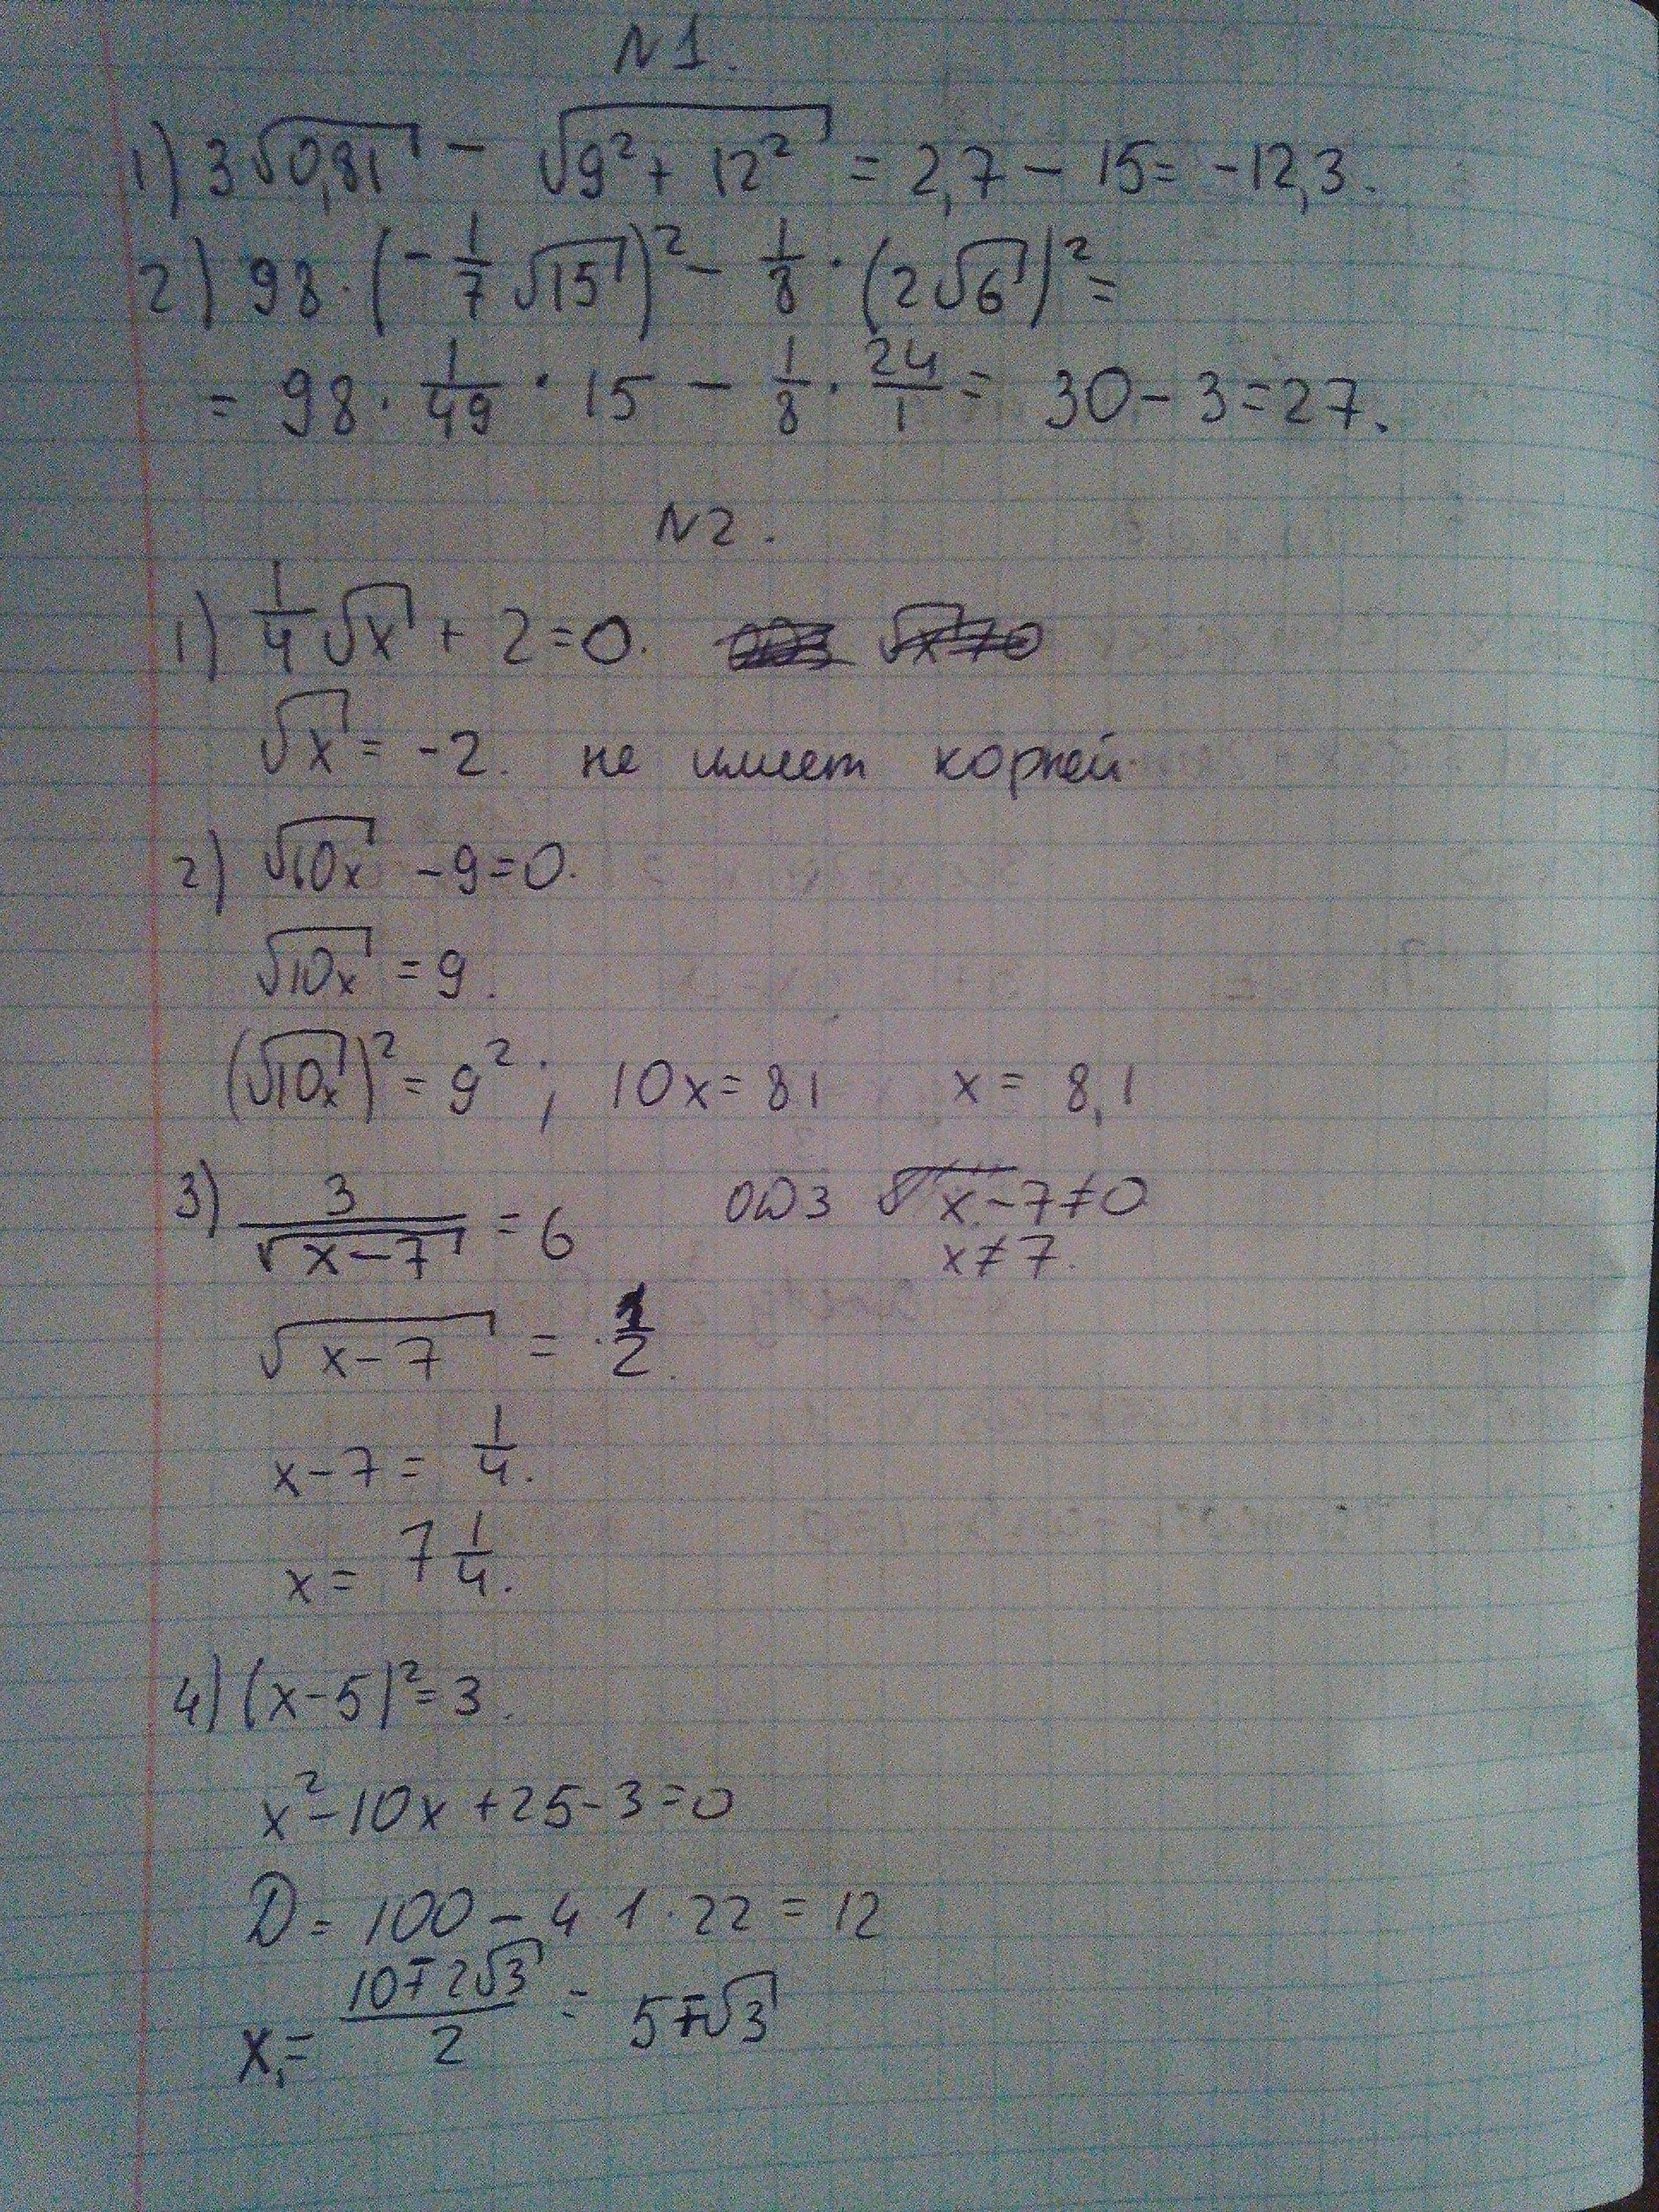 N1.
1) 3√0,81 - √9² + 12² = 2,7 - 15 = -12,3.
2) 98 · (-1/7 √15)² - 1/8 · (2√6)² =
= 98 · 1/49 · 15 - 1/8 · 24/1 = 30 - 3 = 27.
N2.
1) 1/4 √x + 2 = 0.
√x = -2. не имеет корней
2) √10x - 9 = 0.
√10x = 9.
(√10x)² = 9²; 10x = 81 x = 8,1
3) 3/√x-7 = 6 ОДЗ √x-7 ≠ 0
x ≠ 7.
√x-7 = 1/2.
x - 7 = 1/4.
x = 7 1/4.
4) (x-5)² = 3.
x² - 10x + 25 - 3 = 0
D = 100 - 4 1 · 22 = 12
x₁ = 10∓2√3/2 = 5∓√3